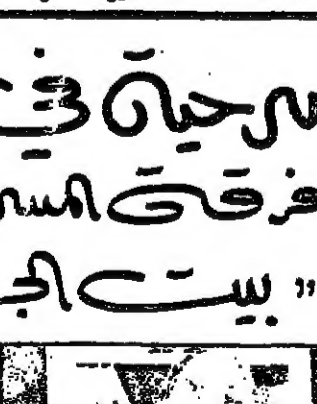 سرحية في
فرقة المس
" بيت الج